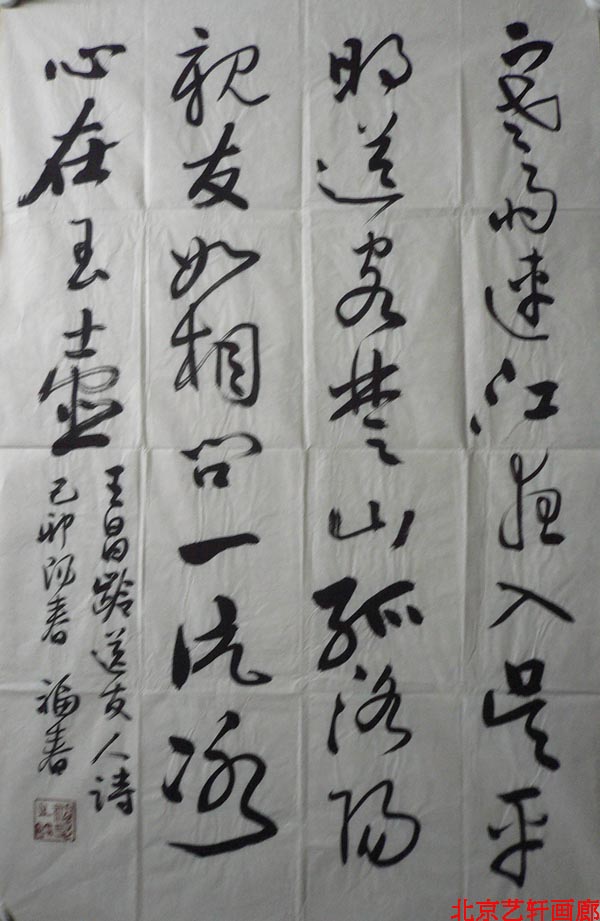 寒雨連江夜入吴平
明送客楚山孤洛陽
親友如相問一片冰
心在玉壺
王昌齡送友人詩
己卯陽春 福春
北京艺轩画廊